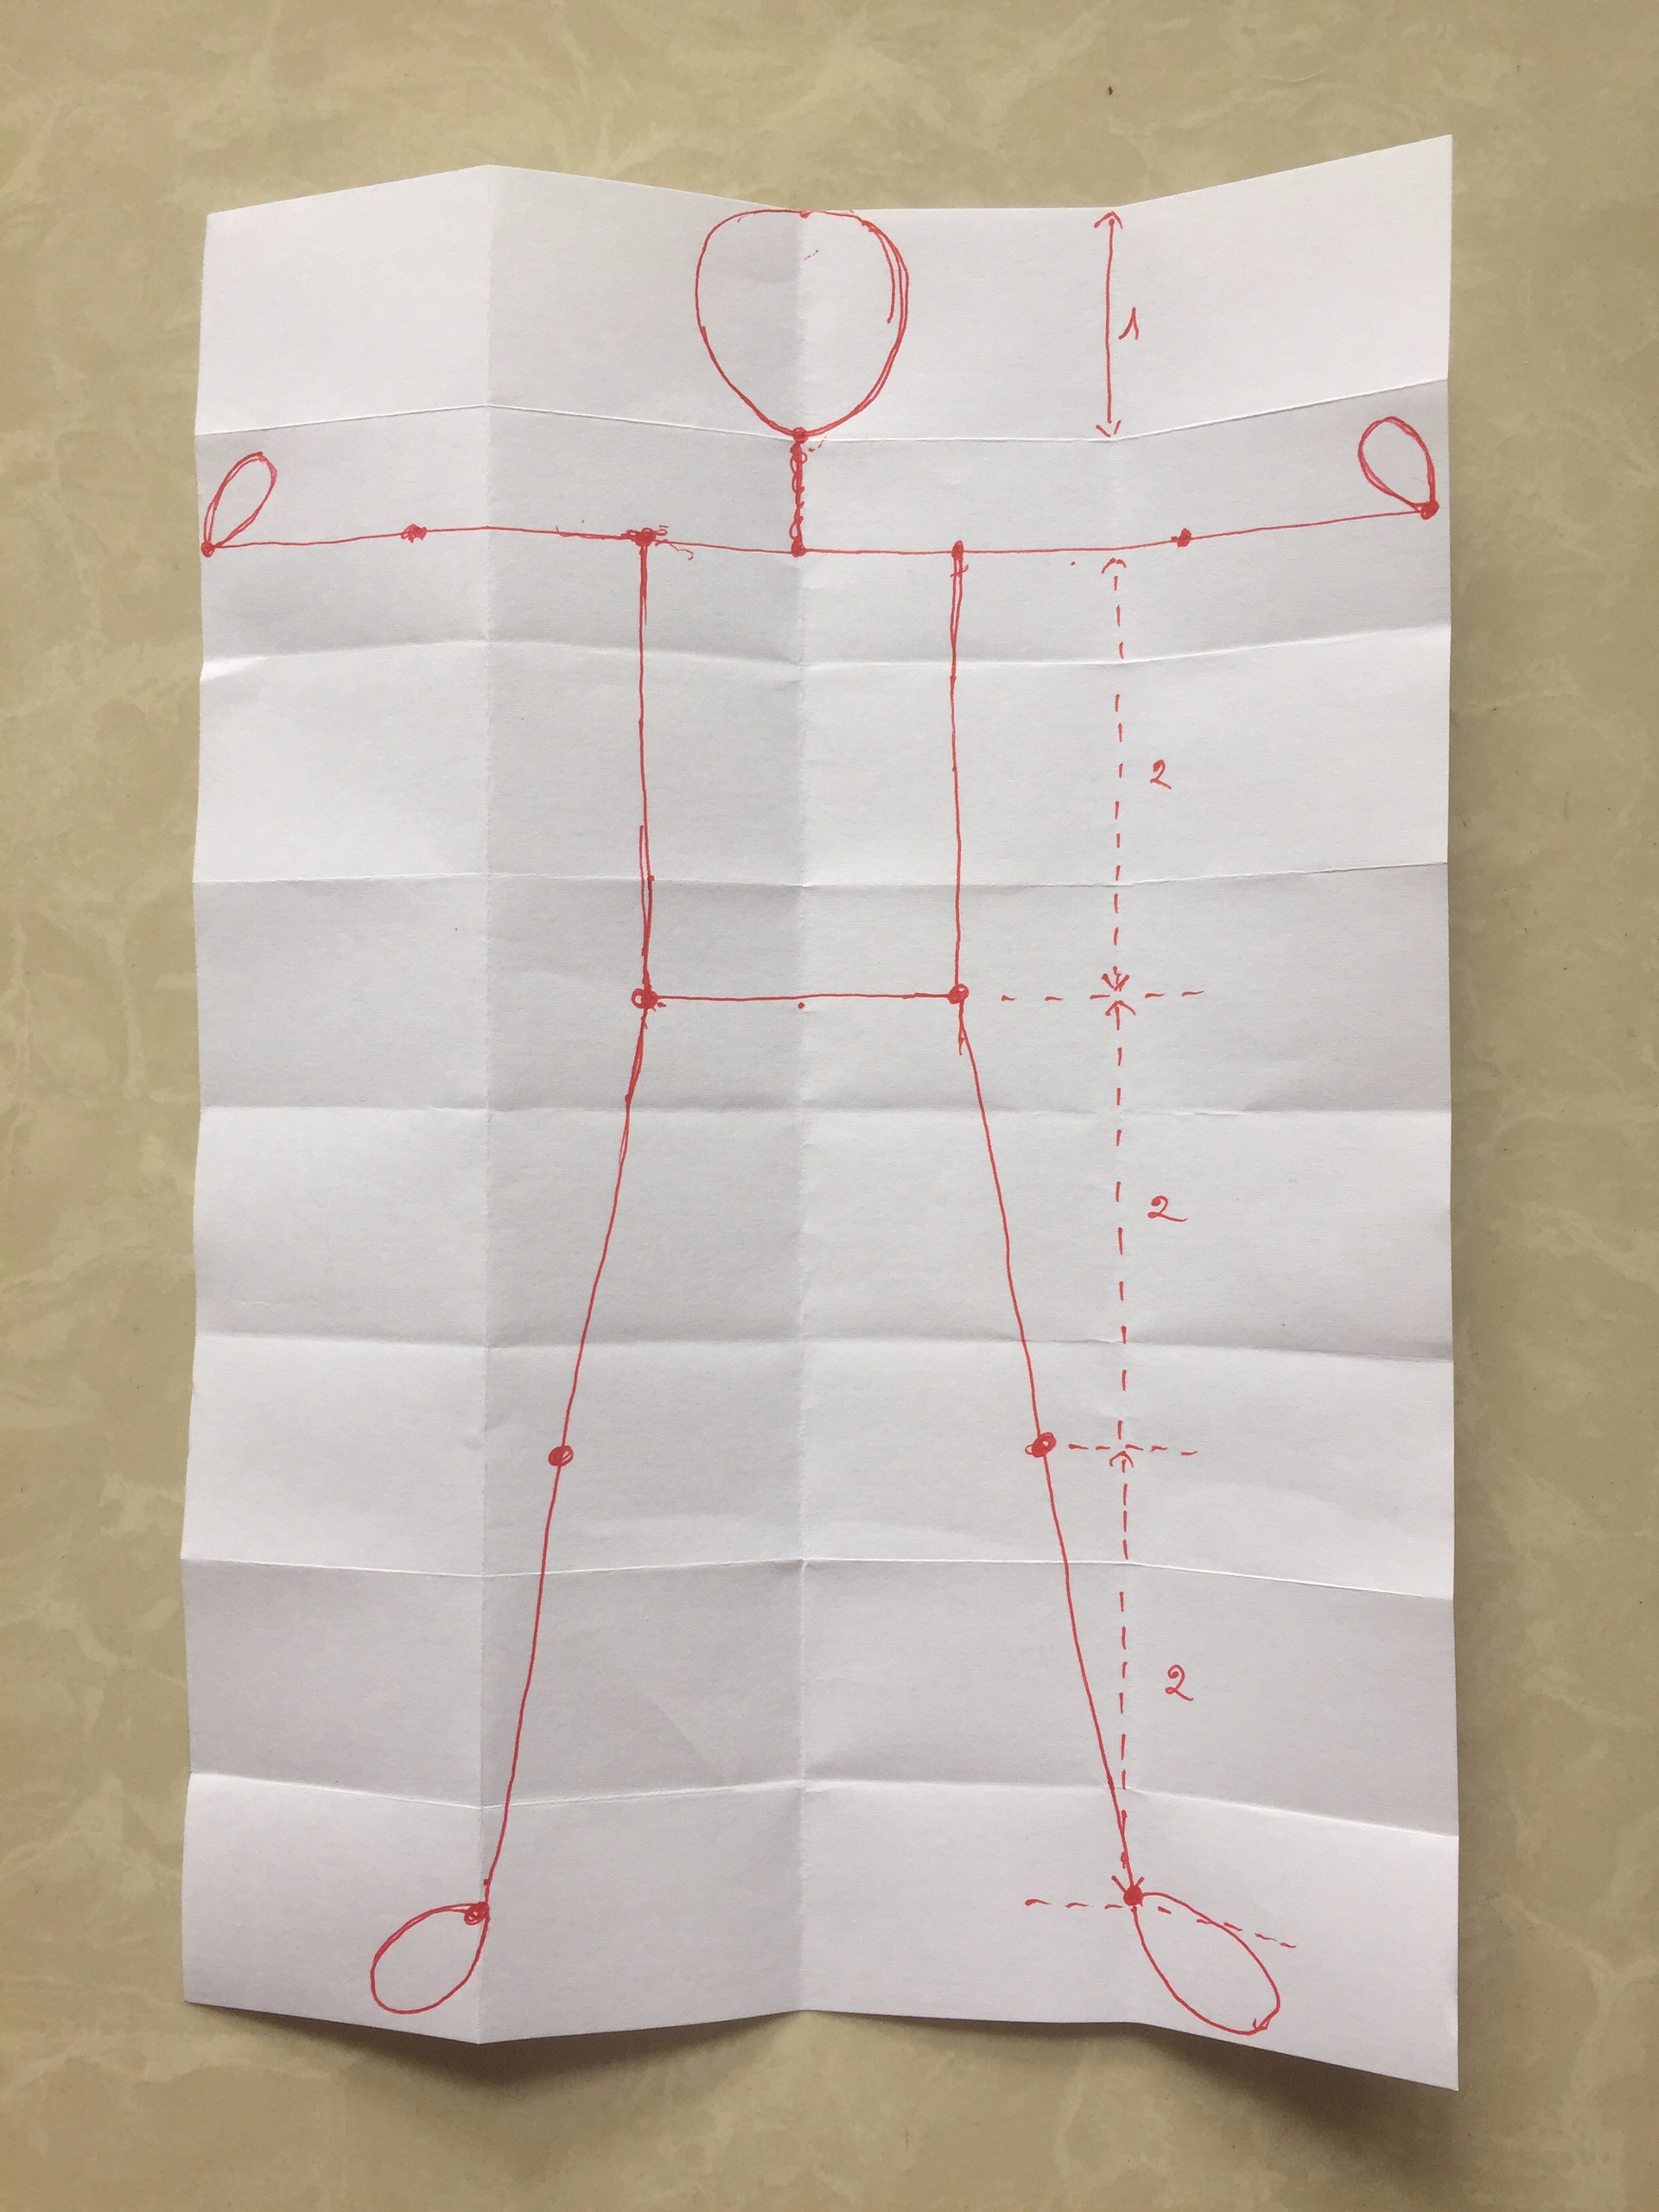 1
2
2
2